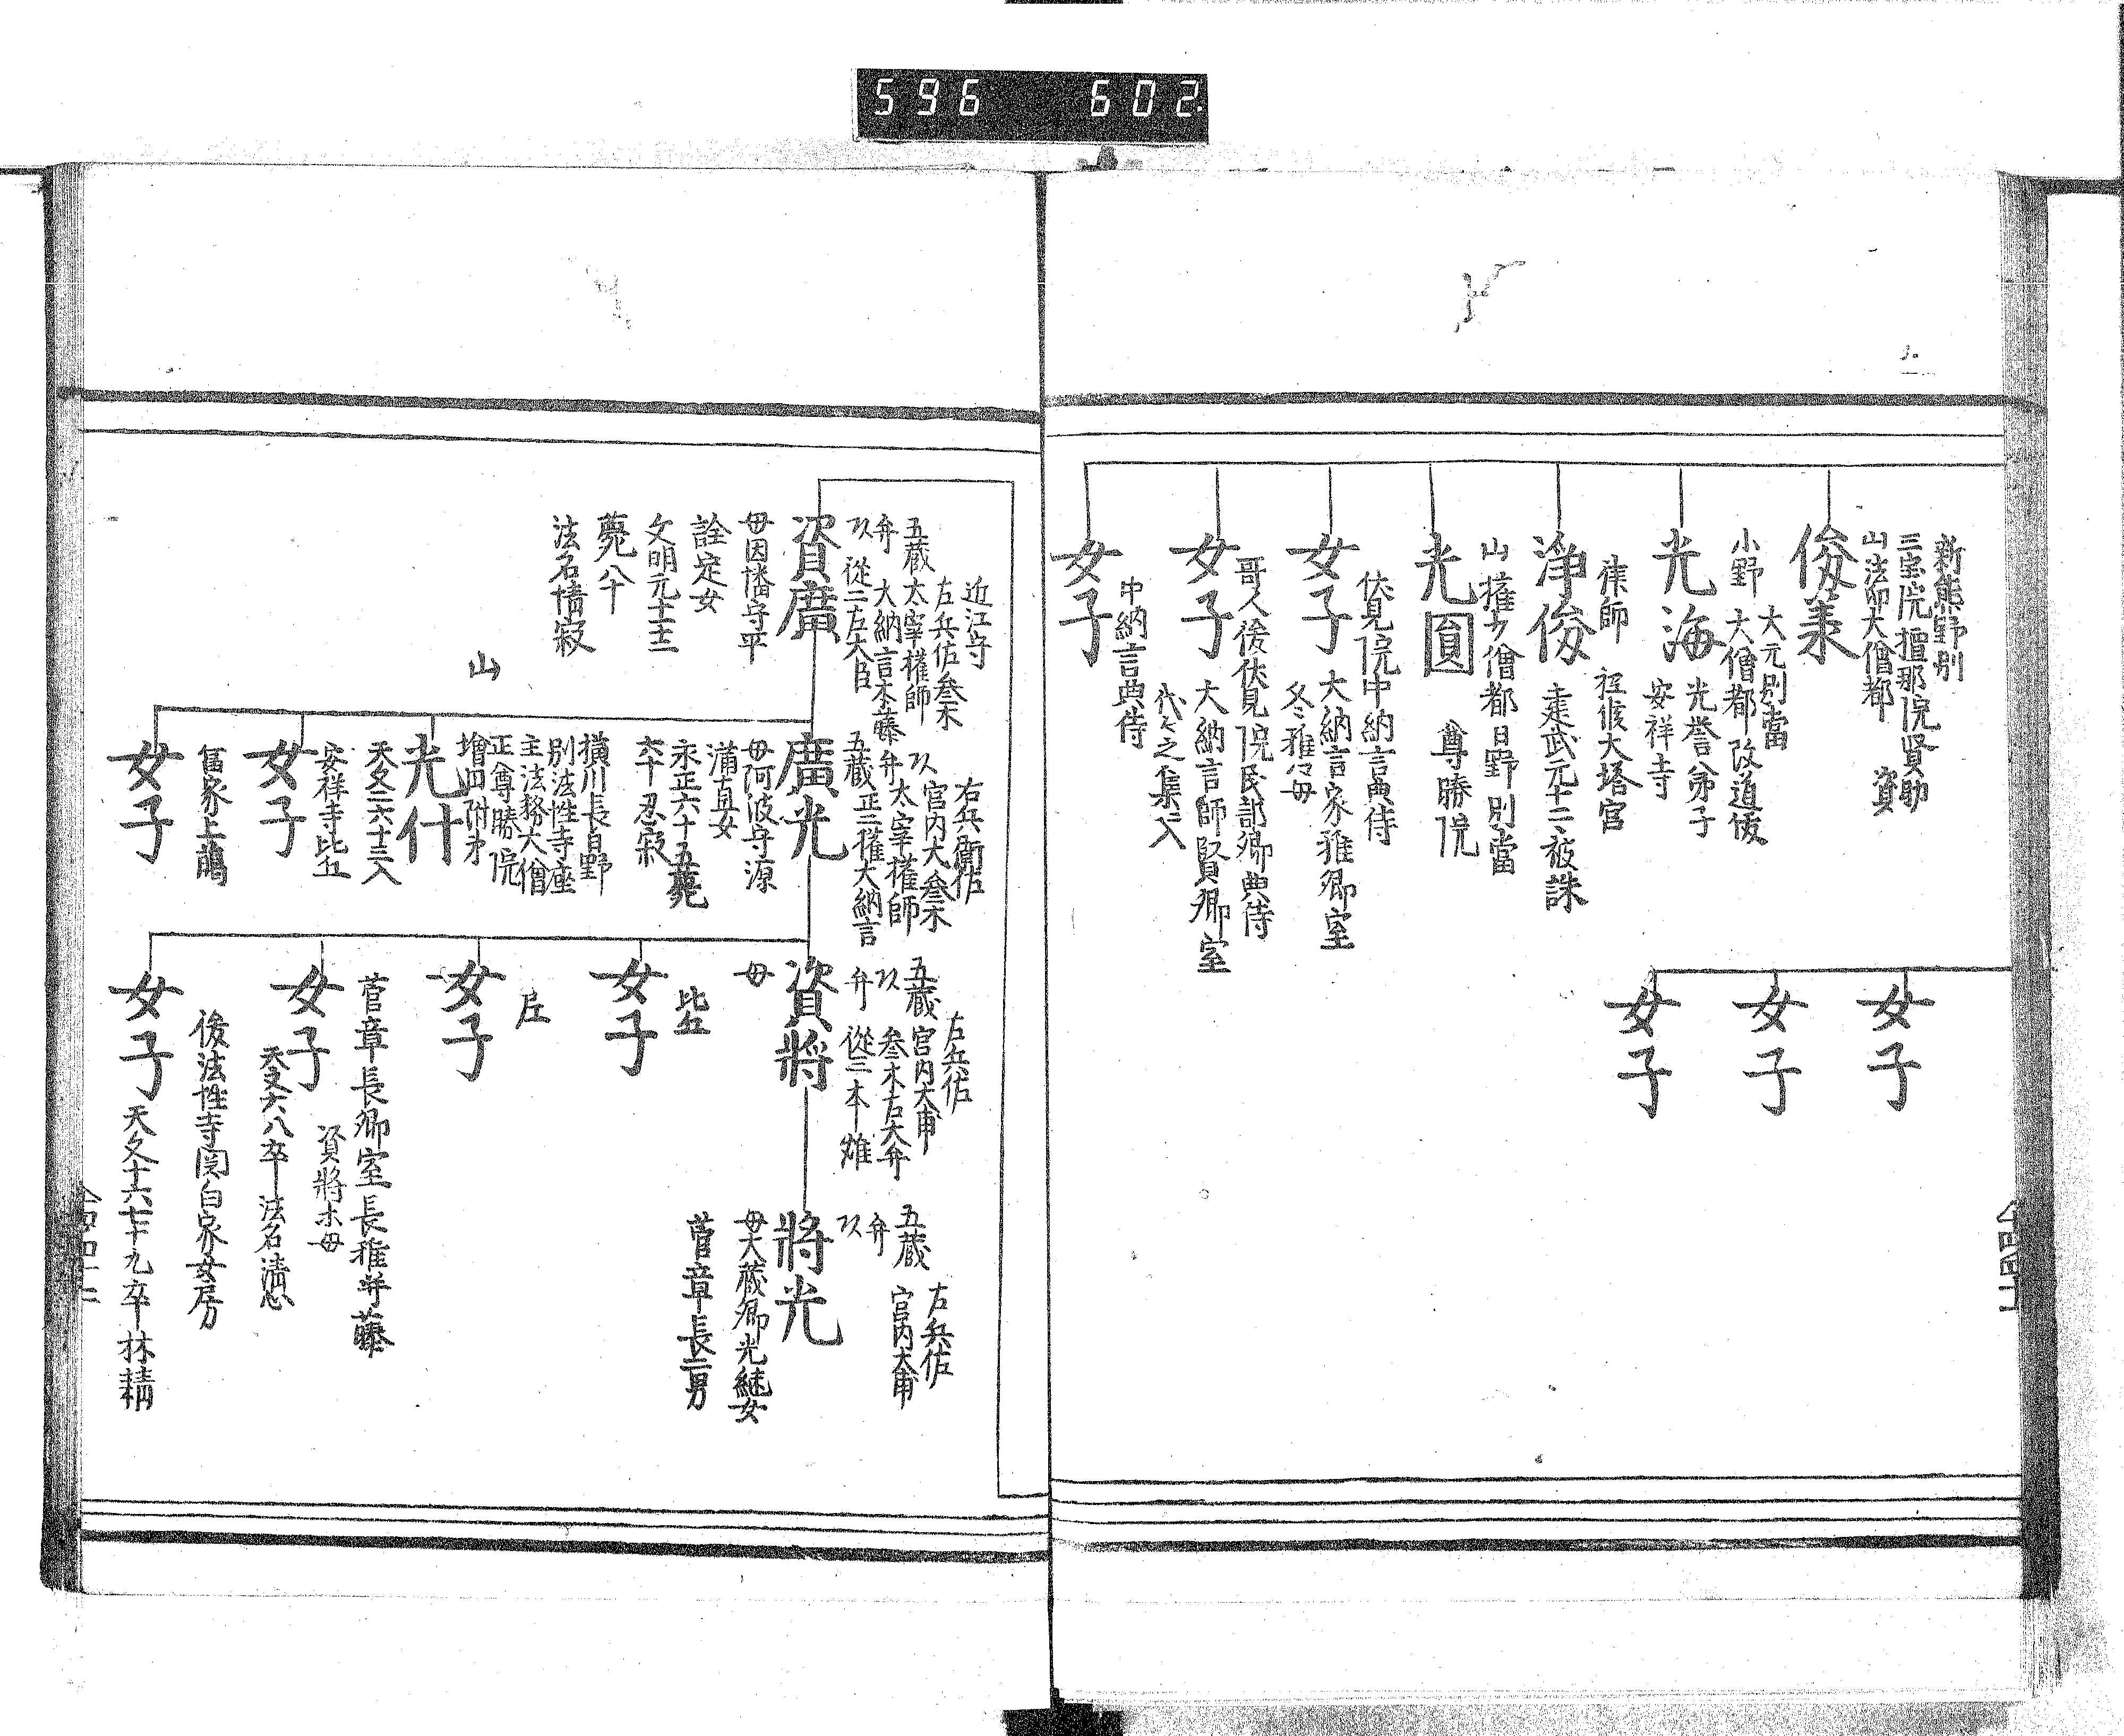 596 602
新熊野別
三宝院檀那院賢助
山法印大僧都 資
俊業
大元別當
小野 大僧都改道俊
光海
光誉弟子
安祥寺
律師 祗候大塔宮
浄俊
建武元十二被誅
山権少僧都日野別當
光圓
尊勝院
伏見院中納言典侍
女子
大納言家雅卿室
冬雅母
哥人後伏見院民部卿典侍
女子
大納言師賢卿室
代々之集入
中納言典侍
女子
女子
女子
女子
近江守
左兵佐叅木
五蔵太宰権師
弁 大納言本藤
從二左大臣
資廣
母因幡守平
詮定女
文明元士士
薨八十
法名情寂
山
右兵衛佐
宮内大叅木
弁太宰権師
五蔵正二権大納言
廣光
母阿波守源
満直女
永正六十五薨
六十忍寂
横川長白野
別法性寺座
主法務大僧
正尊勝院
増四附弟
光什
天文二六十三入
安祥寺比丘
女子
冨家上﨟
女子
左兵佐
五蔵 宮内大甫
叅木右大弁
弁 從三本雄
資將
母
比丘
女子
丘
女子
菅章長卿室長雅并藤
資將木母
女子
天文六八卒法名清心
後法性寺関白家女房
女子
天文十六七十九卒林精
左兵佐
五蔵 宮内大甫
弁
將光
母大蔵卿光継女
菅章長二男